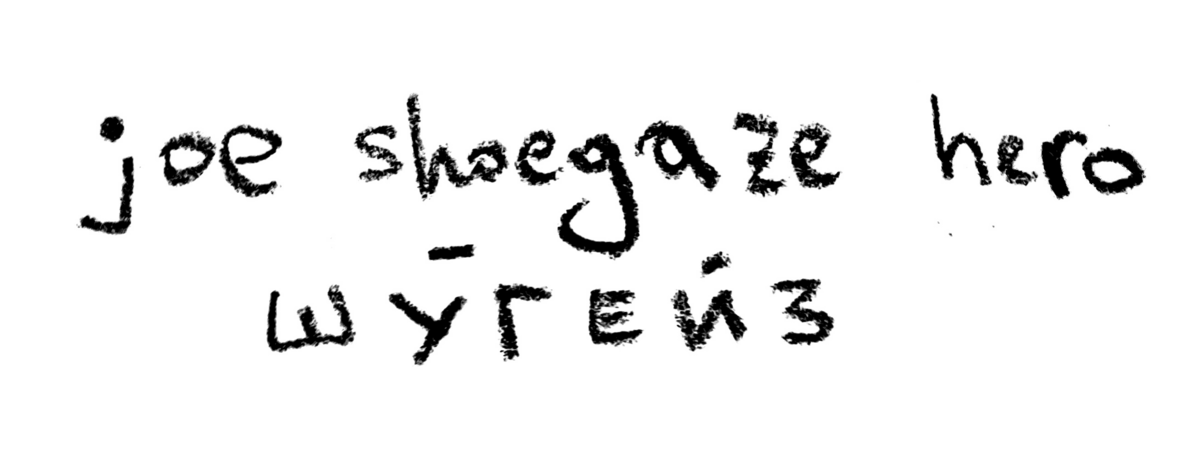 joe shoegaze hero
ШӮГЕЙЗ